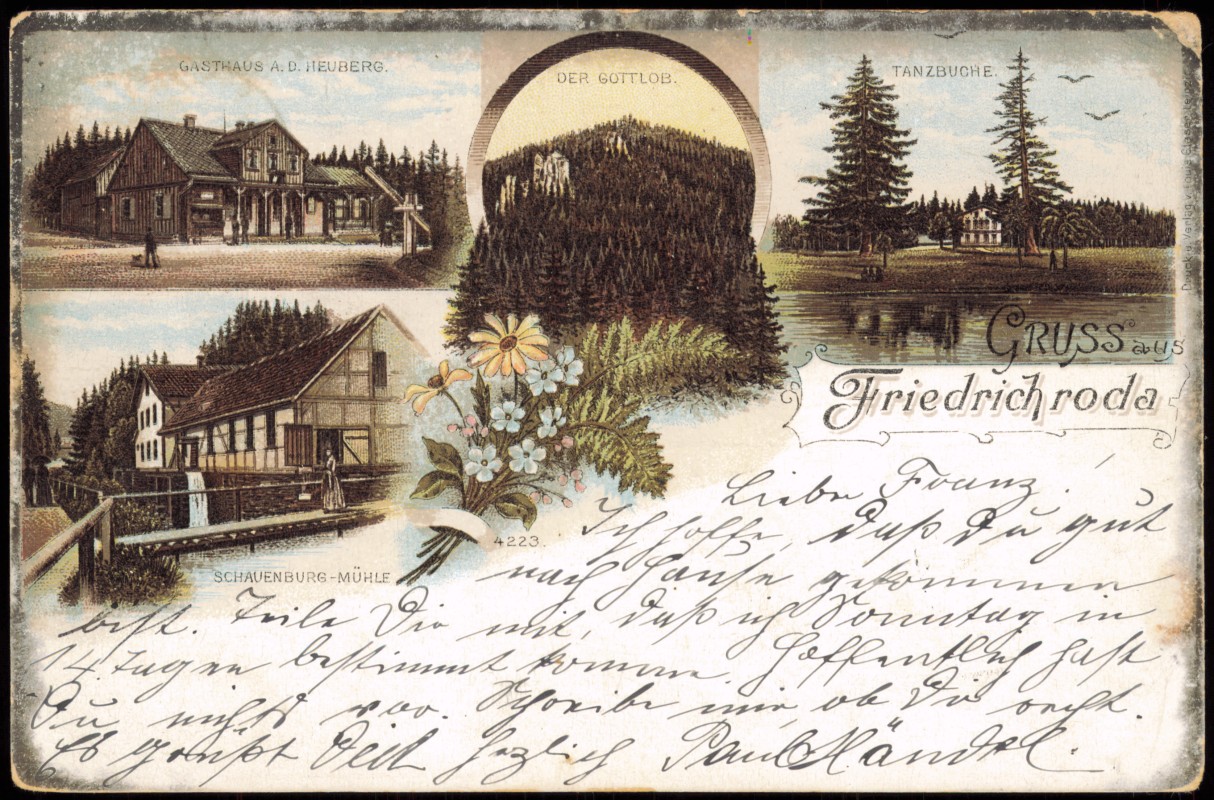 GASTHAUS A. D. HEUBERG.
DER GOTTLOB.
TANZBUCHE.
GRUSS aus
Friedrichroda
SCHAUENBURG-MÜHLE
4223.
Lieber Franz!
Ich hoffe, daß Du gut
nach Hause gekommen
bist. Teile Dir mit, daß ich Sonntag in
14 Tagen bestimmt komme. Hoffentlich hast
Du nichts vor. Schreibe mir, ob Dir recht.
Es grüßt Dich herzlich Paul Händel.